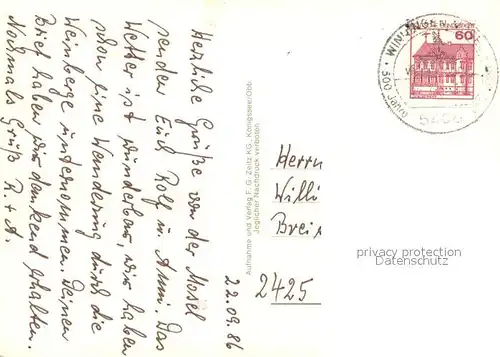 Herzliche Grüße von der Mosel
senden Euch Rolf u. Anni. Das
Wetter ist wunderbar, wir haben
schon eine Wanderung durch die
Weinberge unternommen. Deinen
Brief haben wir dankend erhalten.
Nochmals Gruß R. + A.
22.09.86
Aufnahme und Verlag F. G. Zeitz KG, Königssee/Obb.
Jeglicher Nachdruck verboten
60
WINNINGEN
500 Jahre
Herrn
Willi
Brei
2425
privacy protection
Datenschutz